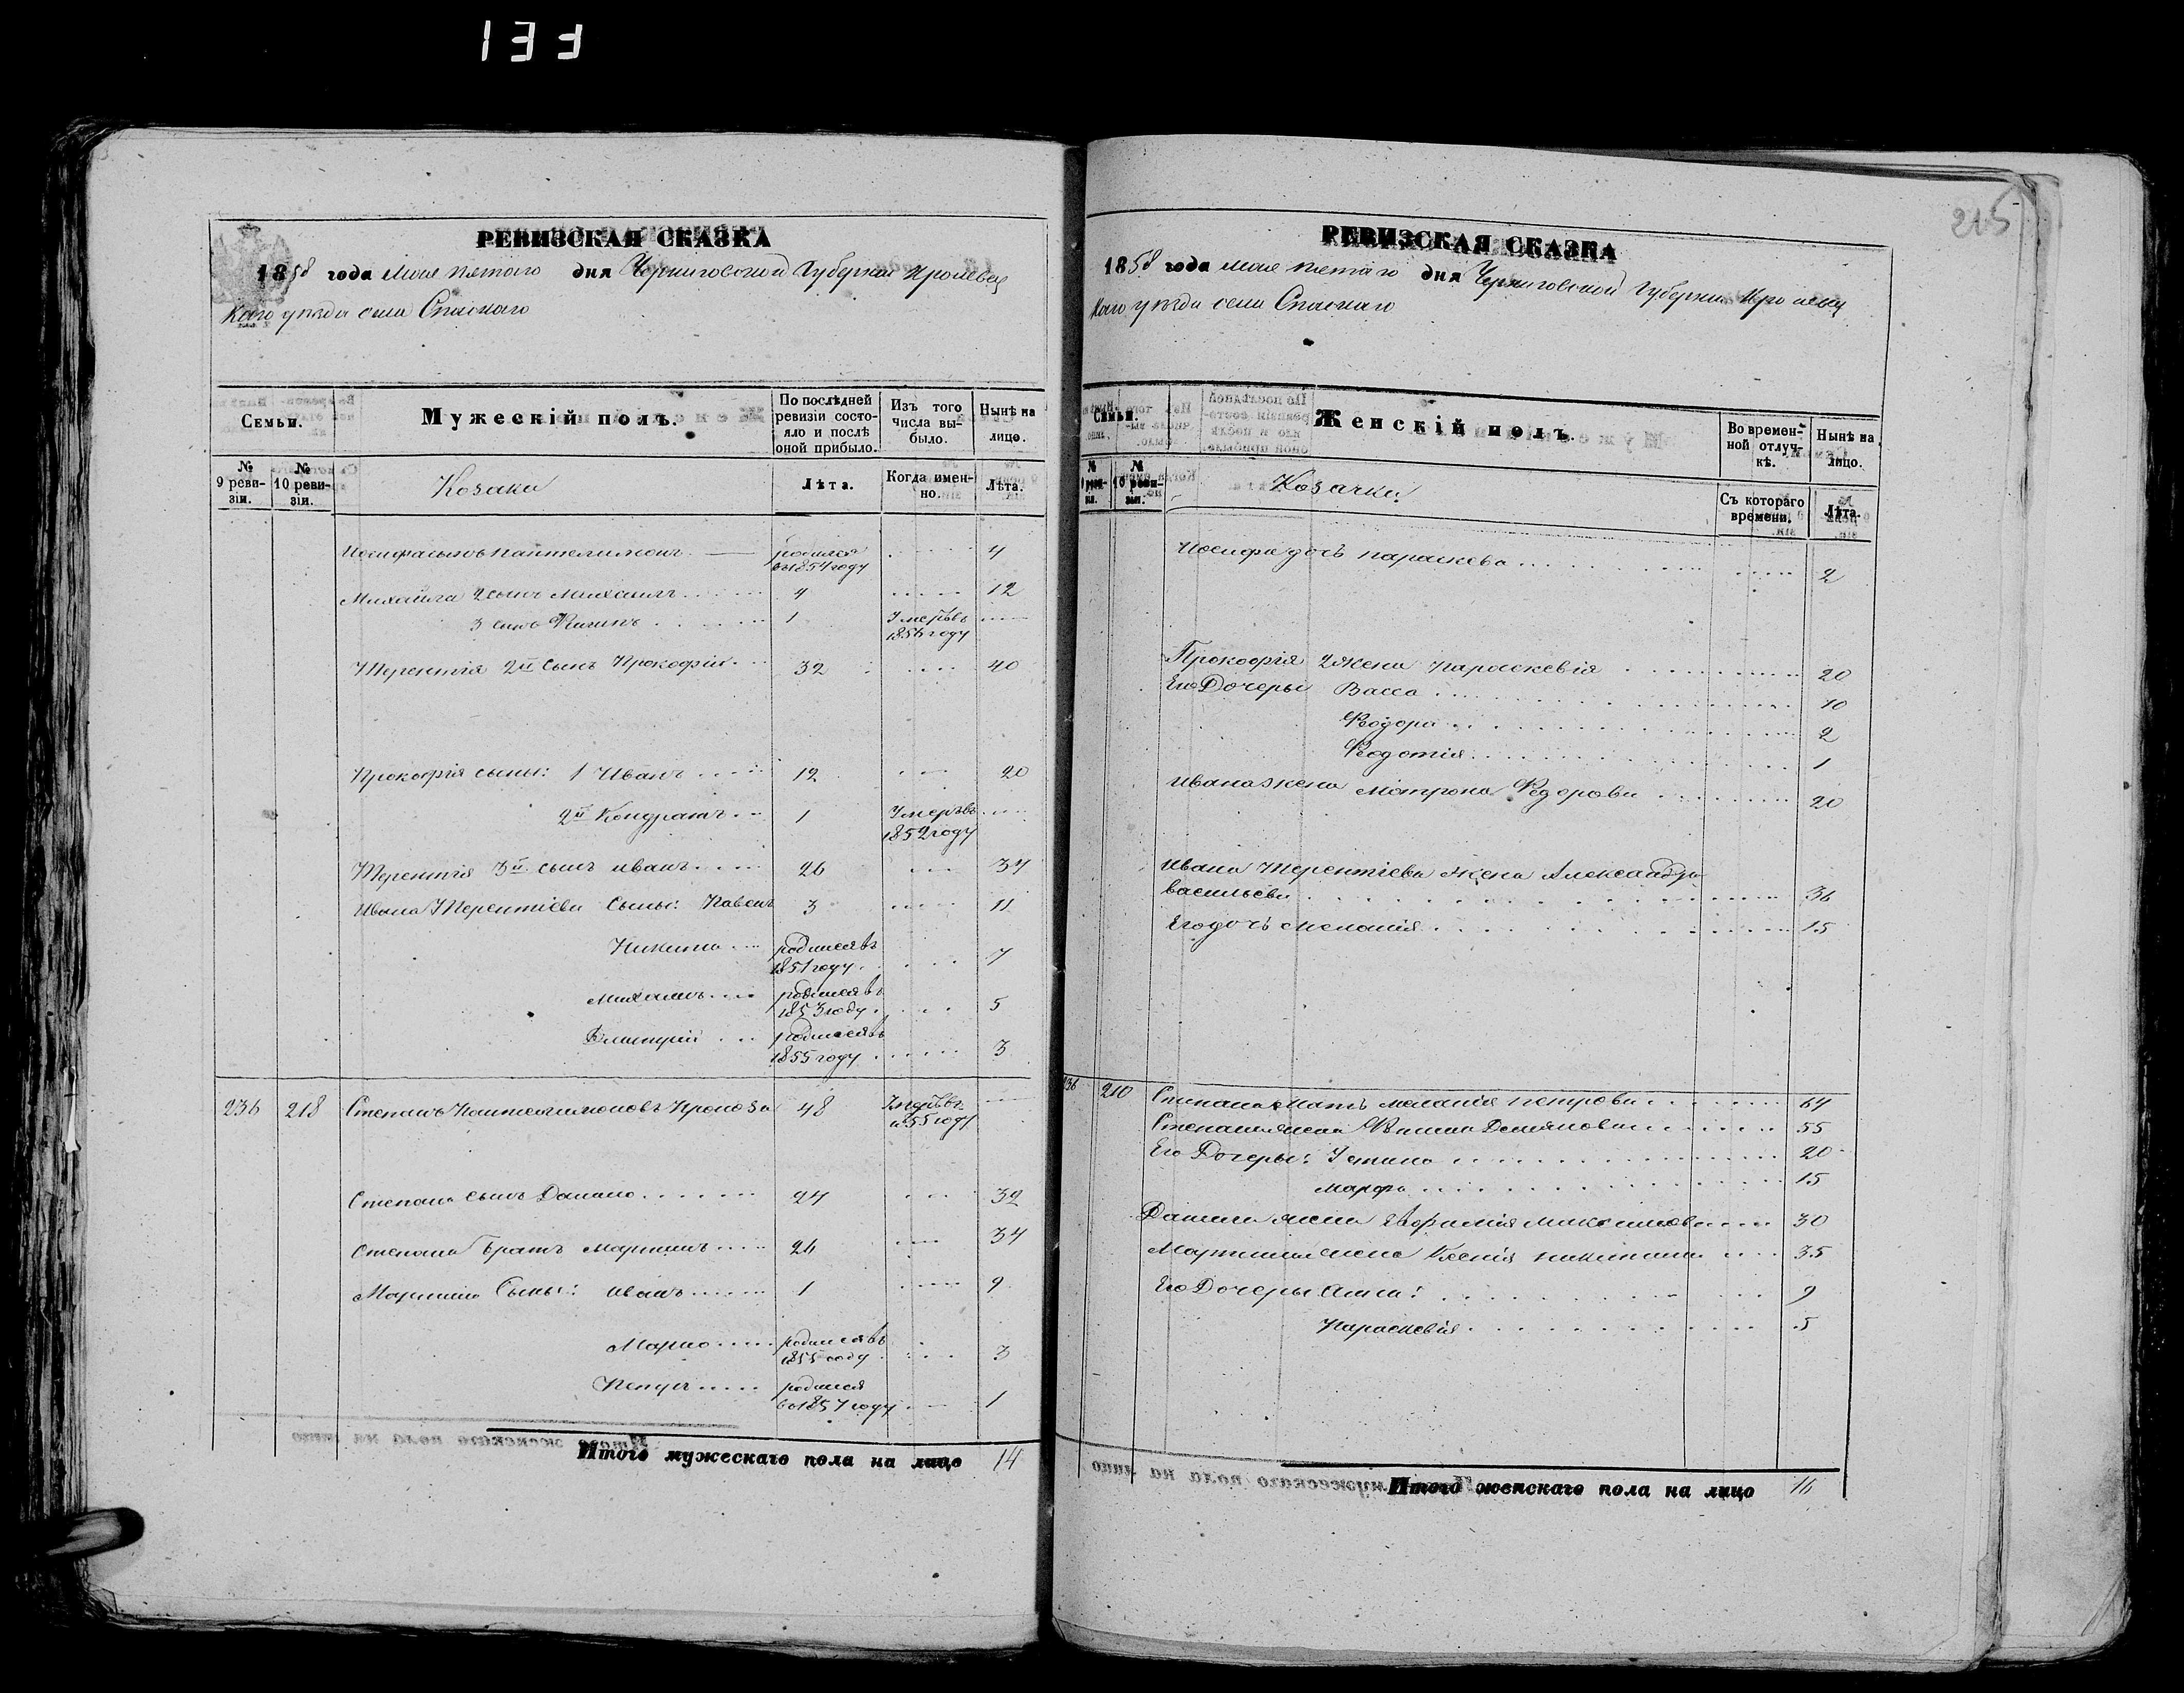 133
215
РЕВИЗСКАЯ СКАЗКА
1858 года мая пятаго дня Черниговской Губернии Кролевец
каго уезда села Спаскаго
Семьи.
Мужескій полъ.
По послѣдней ревизіи состояло и послѣ оной прибыло.
Изъ того числа выбыло.
Нынѣ на лицо.
№ 9 ревизіи.
№ 10 ревизіи.
Козаки
Лѣта.
Когда именно.
Лѣта.
Иосифа сынъ Пантелимонъ родился въ 1854 году 4
Михайла 2 сынъ Михаилъ 4 12
3 сынъ 1 Умеръ въ 1856 году
Терентія 2й сынъ Прокофій 32 40
Прокофія сыны: 1 Иванъ 12 20
2й Кондратъ 1 Умеръ въ 1852 году
Терентія 3й сынъ иванъ 26 34
Ивана Терентіева сыны: Павелъ 3 11
Никита родился въ 1851 году 7
Михаилъ родился въ 1853 году 5
Дмитрій родился въ 1855 году 3
236 218 Степанъ Пантелимоновъ 48 Умеръ въ 1855 году
Степана сынъ Данило 24 32
Степана братъ Мартинъ 26 34
Мартина Сыны: иванъ 1 9
Марко родился въ 1855 году 3
Петръ родился въ 1857 году 1
Итого мужескаго пола на лицо 14
РЕВИЗСКАЯ СКАЗКА
1858 года мая пятаго дня Черниговской Губернии Кролевец
каго уезда села Спаскаго
Семьи.
Женскій полъ.
Во временной отлучкѣ.
Нынѣ на лицо.
№ 9 ревизіи.
№ 10 ревизіи.
Козачки
Съ котораго времени.
Лѣта.
Иосифа дочь параскева 2
Прокофія 2 жена параскевія 20
Его Дочеры Васса 10
Федора 2
Федотія 1
ивана жена Матрона Федорова 20
Ивана Терентіева жена Александра
васильева 36
Его дочь мелания 15
236 210 Степана мать меланія петрова 64
Степана жена Демянова 55
Его Дочеры: Устина 20
марфа 15
Данила жена Ефимія максимова 30
Мартина жена Ксенія никитина 35
Его Дочеры Анна: 9
Параскевія 5
Итого женскаго пола на лицо 16